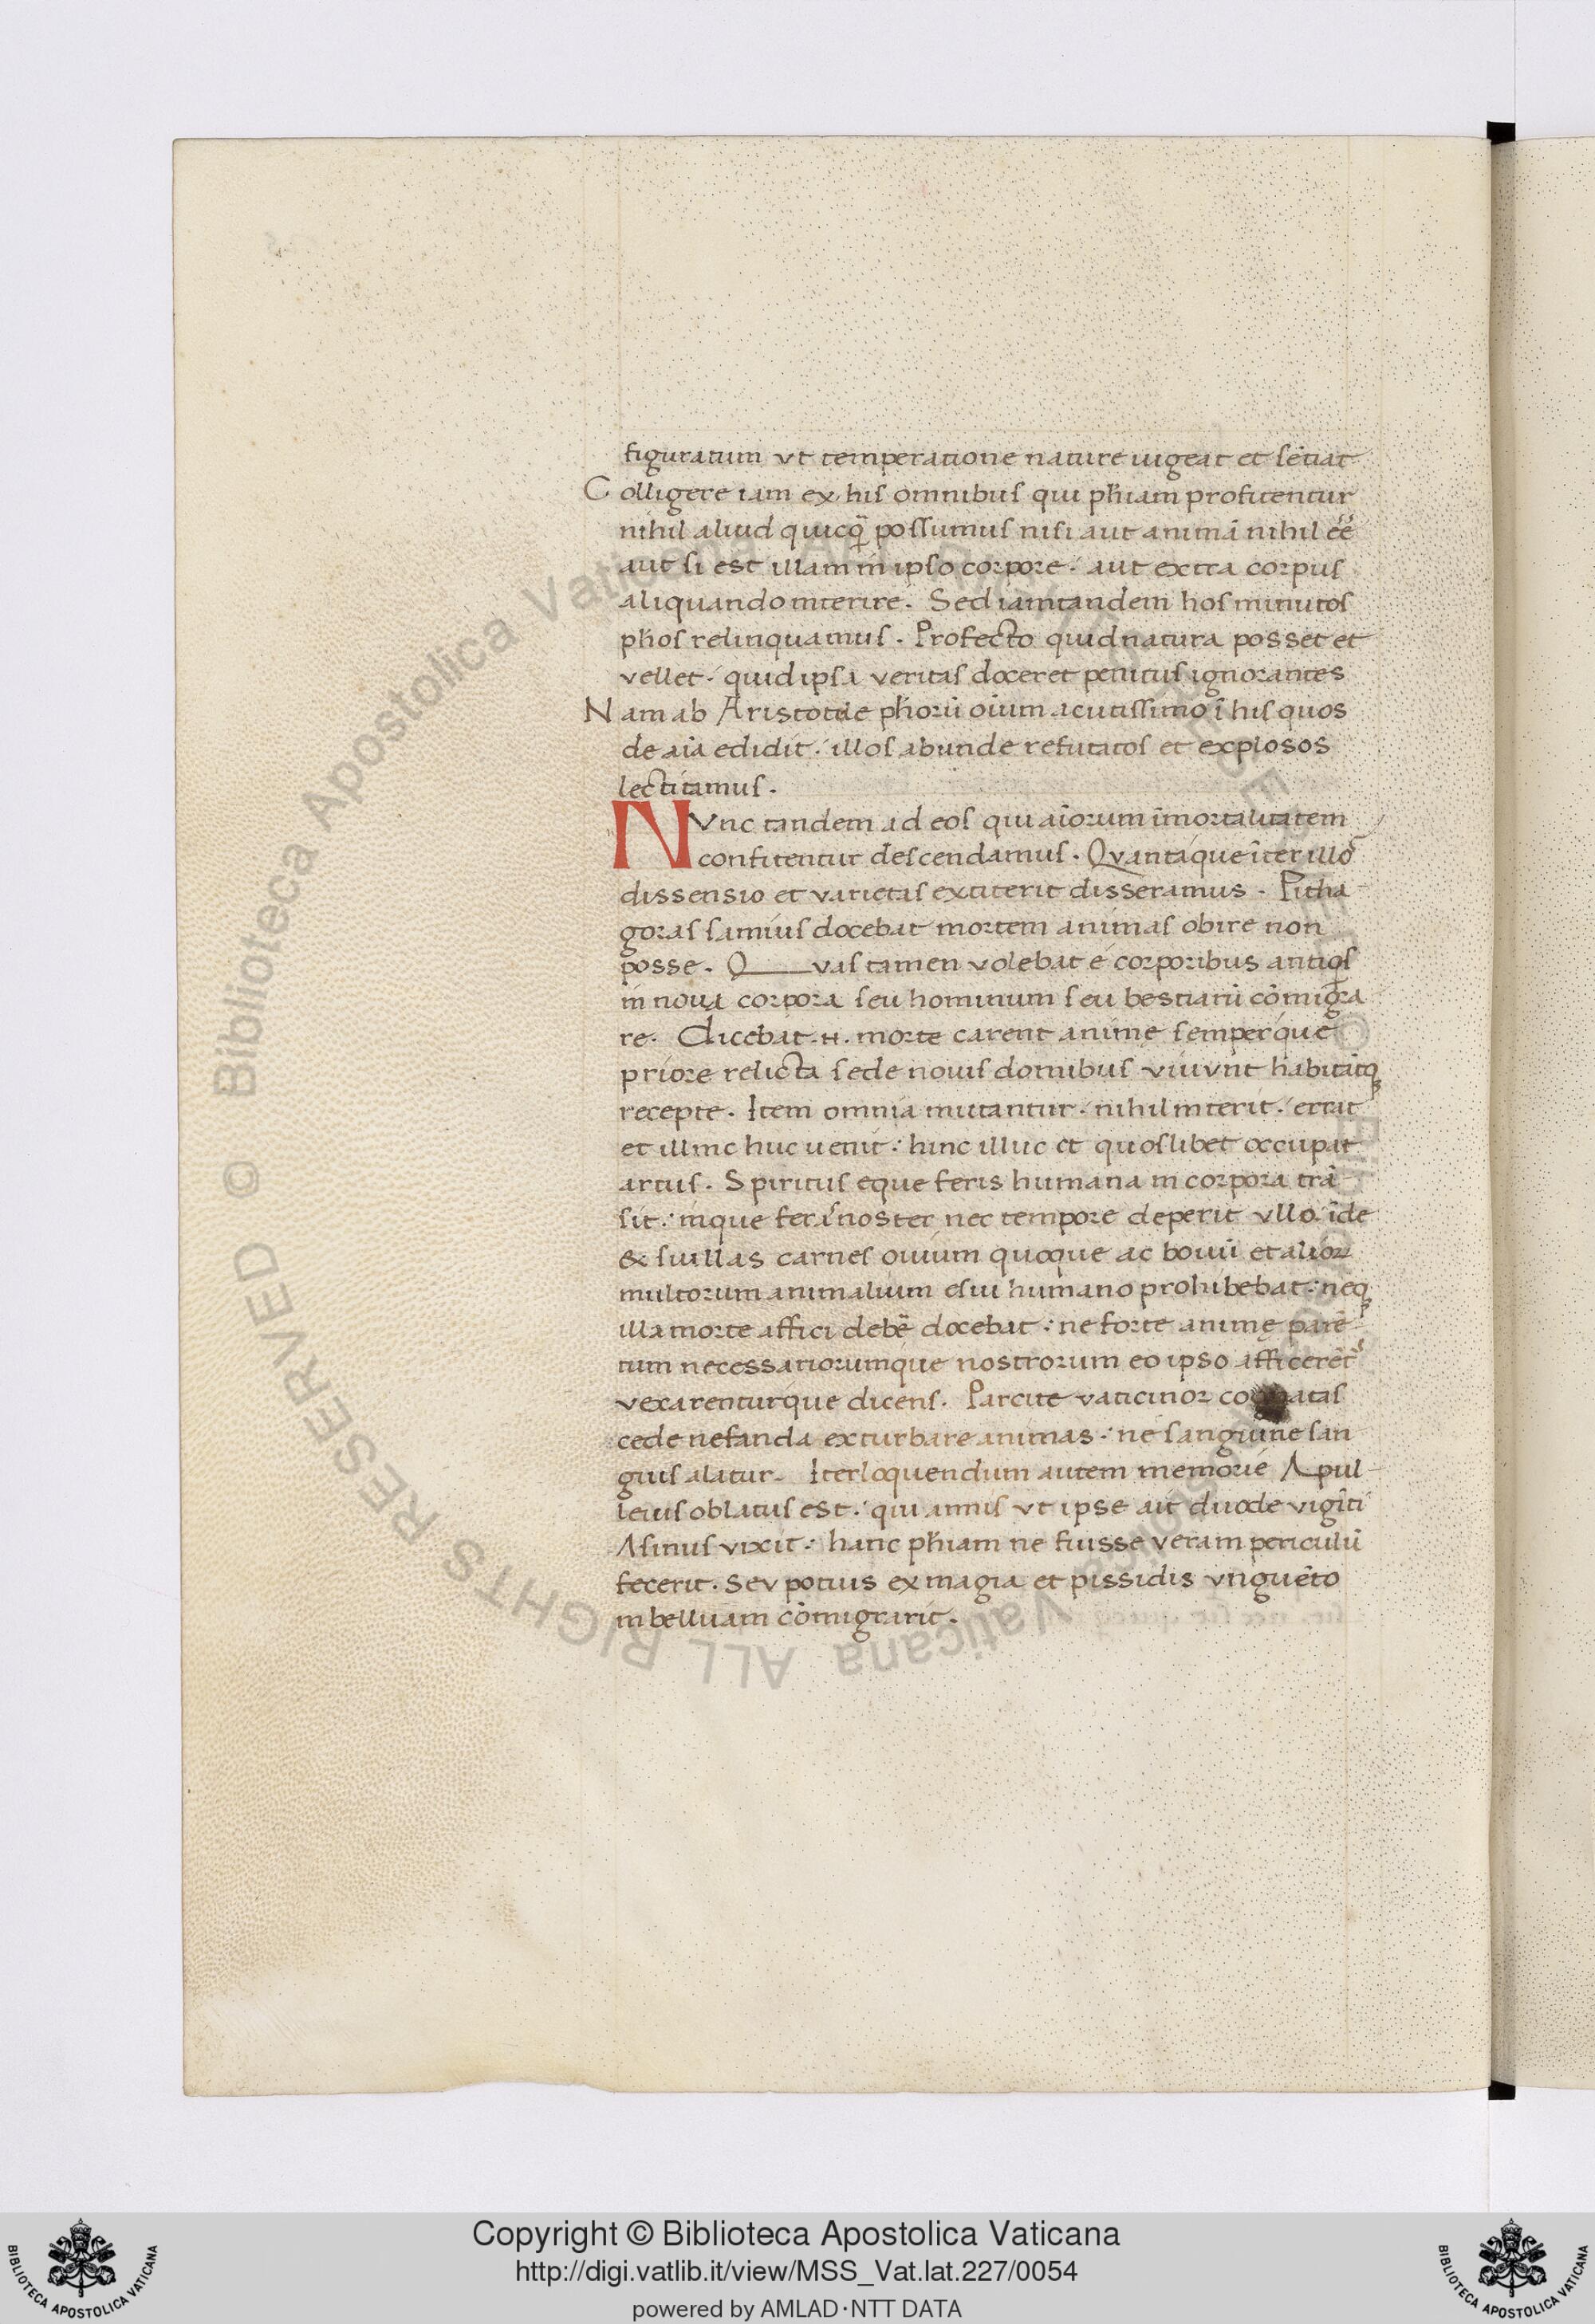 figuratum vt temperatione nature uigeat et sētiat
Colligere iam ex his omnibus qui phīam profitentur
nihil aliud quicq̄ possumus nisi aut animā nihil eē
aut si est illam in ipso corpore · aut extra corpus
aliquando interire. Sed iam tandem hos minutos
phōs relinquamus. Profecto quid natura posset et
vellet · quid ipsa veritas doceret penitus ignorantes
Nam ab Aristotele phōrū oīum acutissimo ī his quos
de aīa edidit · illos abunde refutatos et explosos
lectitamus.
NVnc tandem ad eos qui aīorum īmortalitatem
confitentur descendamus. Qvantáque īter illoꝝ
dissensio et varietas extiterit disseramus. Pitha
goras samius docebat mortem animas obire non
posse. Qvas tamen volebat é corporibus antiq̇s
in noua corpora seu hominum seu bestiarū cōmigra
re. Dicebat .n. morte carent anime semperque
priore relicta sede nouis domibus viuvnt habitātq
recepte. Item omnia mutantur · nihil interit · errat
et illinc huc uenit : hinc illuc et quoslibet occupat
artus. Spiritus eque feris humana in corpora trā
sit : inque feras noster nec tempore deperit vllo īde
& suillas carnes ouium quoque ac bouū et alioꝝ
multorum animalium esui humano prohibebat : neq
illa morte affici debē docebat : ne forte animę parē
tum necessariorumque nostrorum eo ipso afficerēt᷑
vexarenturque dicens. Parcite vaticinor cognatas
cede nefanda exturbare animas : ne sanguine san
guis alatur. Iterloquendum autem memorie Apul
leius oblatus est : qui annis vt ipse ait duode vigīti
Asinus vixit : hanc phīam ne fuisse veram periculū
fecerit. Sev potius ex magia et pissidis vnguēto
in belluam cōmigrarit.
Copyright © Biblioteca Apostolica Vaticana
http://digi.vatlib.it/view/MSS_Vat.lat.227/0054
powered by AMLAD·NTT DATA
BIBLIOTECA APOSTOLICA VATICANA
BIBLIOTECA APOSTOLICA VATICANA
© Biblioteca Apostolica Vaticana ALL RIGHTS RESERVED
© Biblioteca Apostolica Vaticana ALL RIGHTS RESERVED